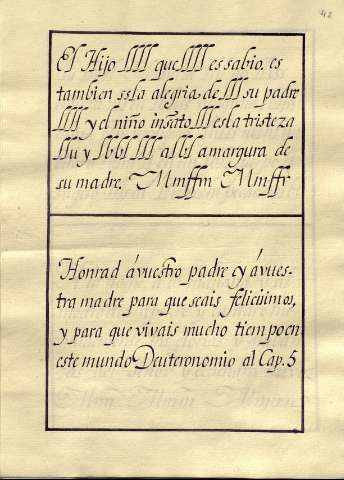 42
El Hijo ſſſſ que ſſſſ es sabio, es
tambien ssla alegria de ſſſ su padre
ſſſſ y el niño insẽato ſſſ es la tristeza
ſſu y ſbbſ ſſſ a ſbſ amargura de
su madre. Mmffm Mmffr
Honrad á vuestro padre y á vues-
tra madre para que seais felicissimos,
y para que vivais mucho tiempo en
este mundo Deuteronomio al Cap. 5